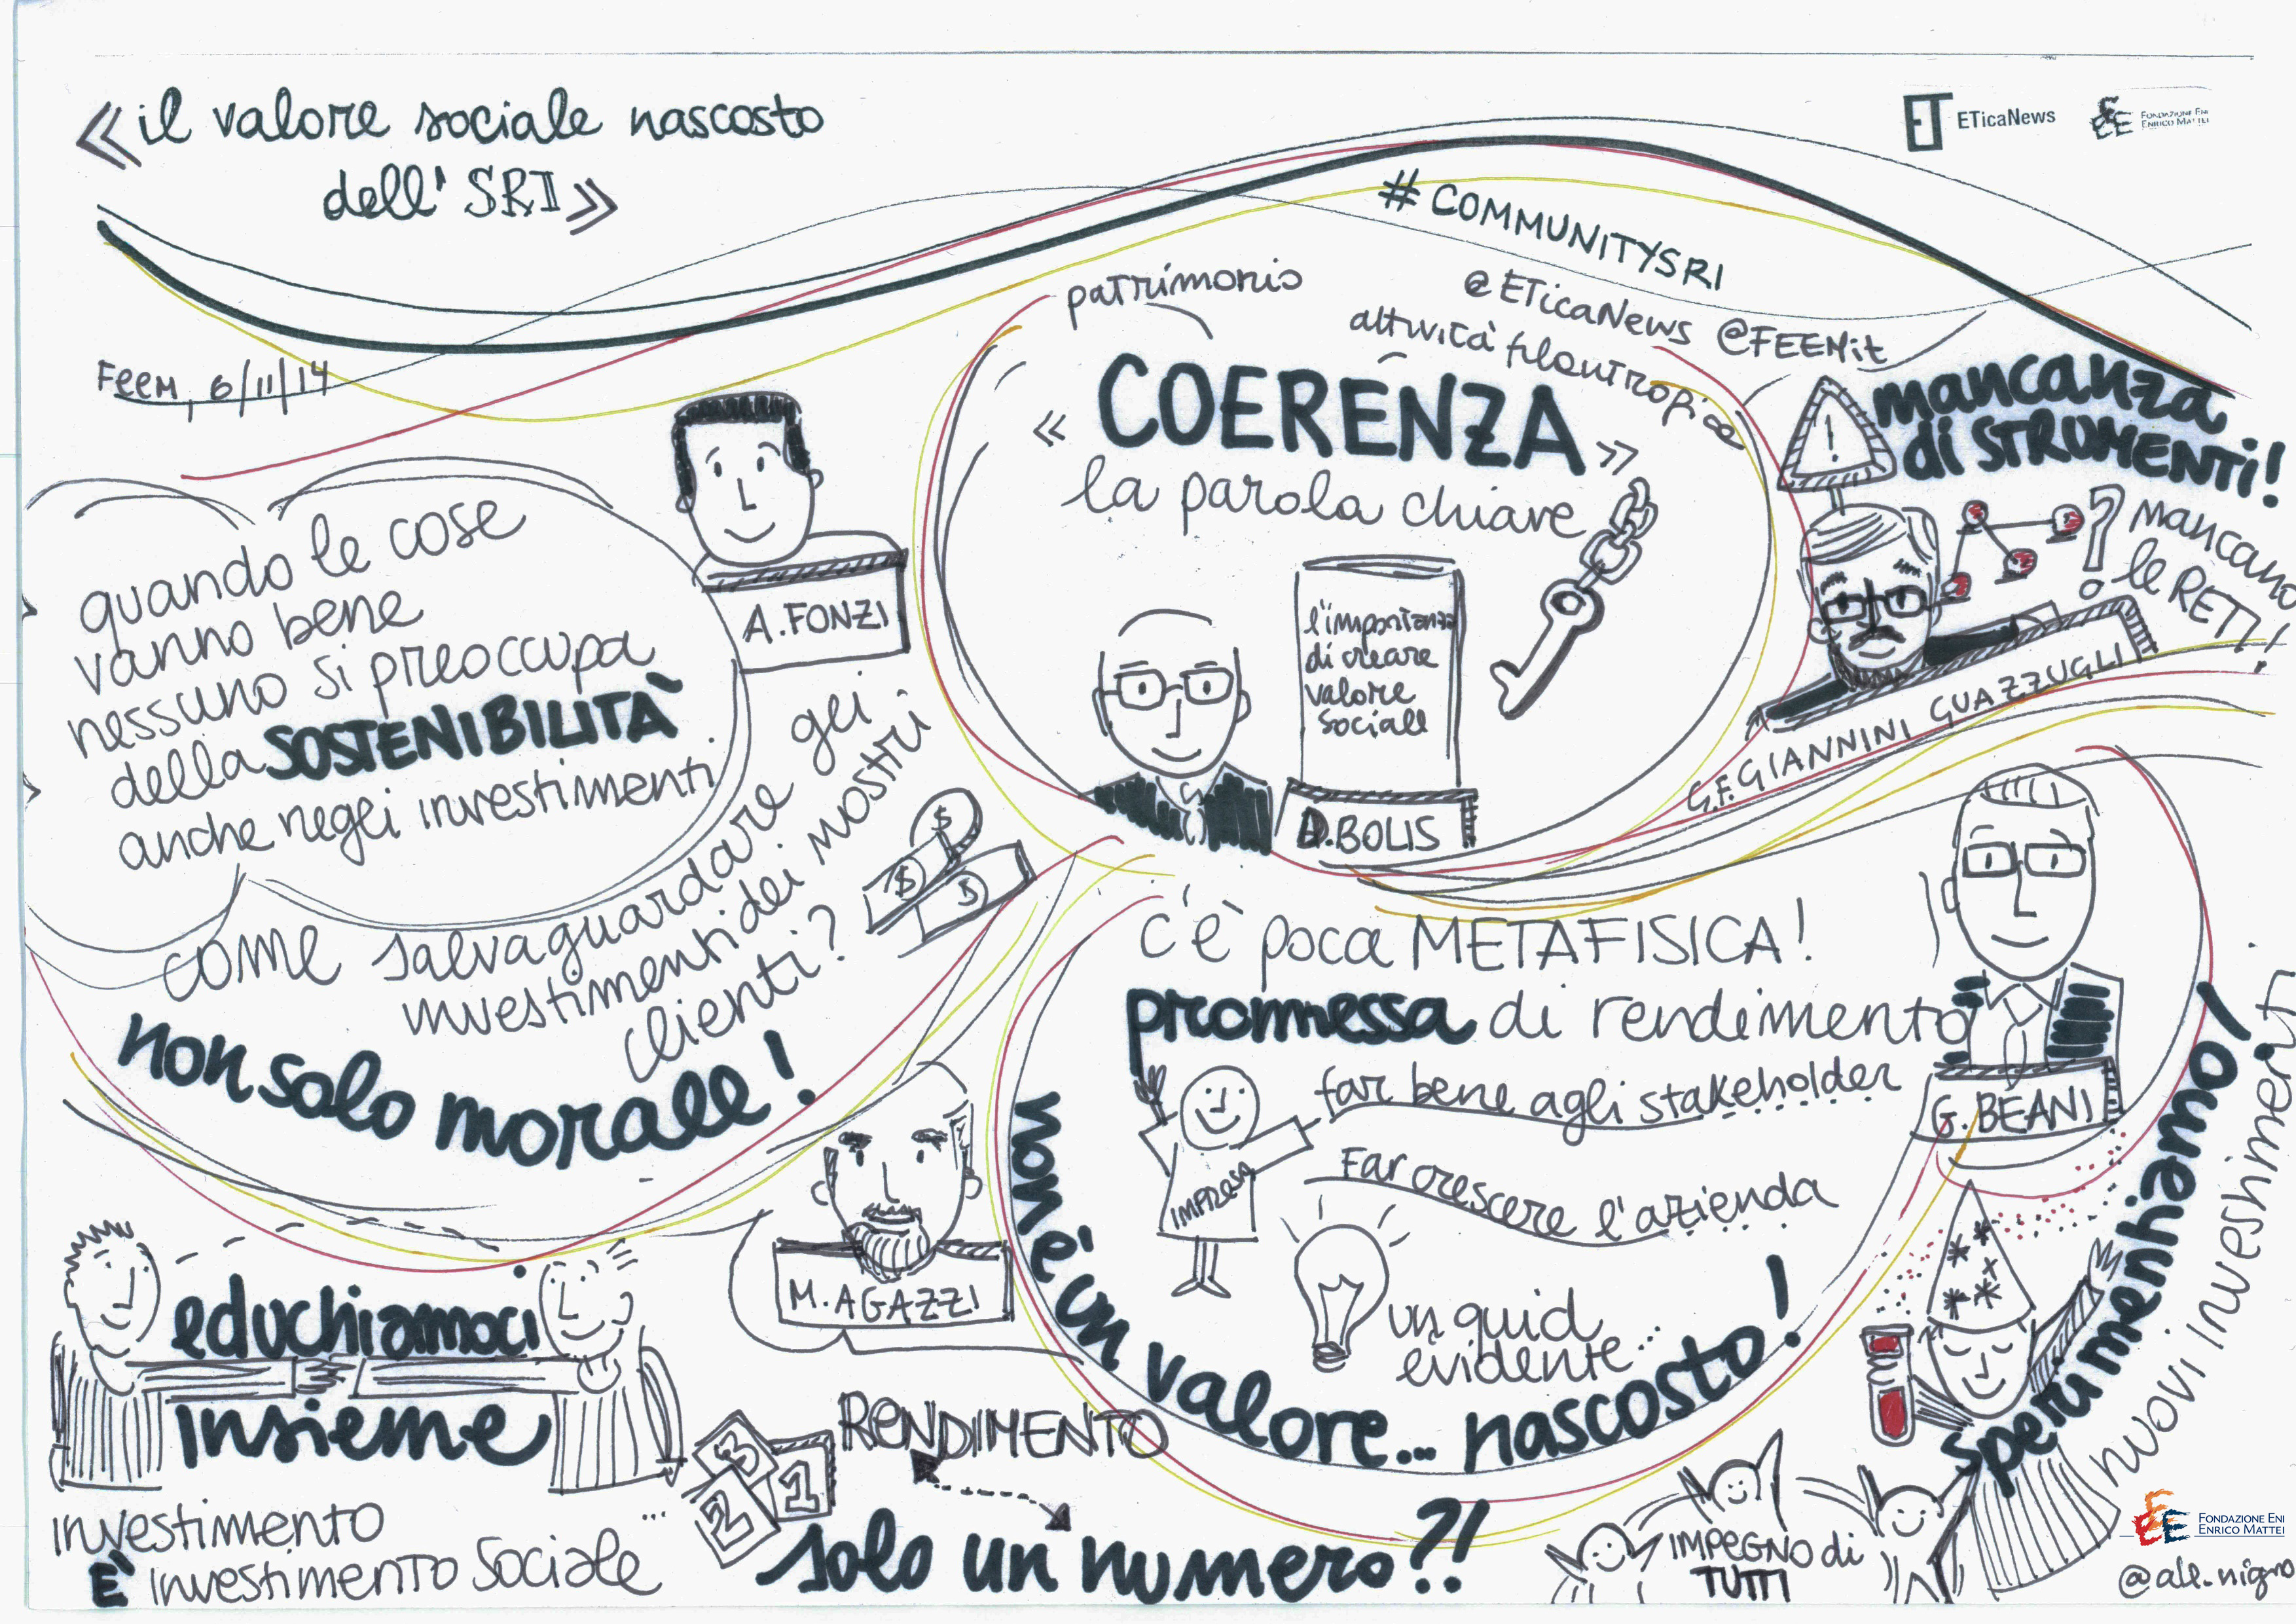 «il valore sociale nascosto
dell' SRI»
ETicaNews
FONDAZIONE ENI
ENRICO MATTEI
#COMMUNITYSRI
@ETicaNews @FEEMit
FEEM, 6/11/14
quando le cose
vanno bene
nessuno si preoccupa
della SOSTENIBILITÀ
anche negli investimenti
A. FONZI
come salvaguardare gli
investimenti dei nostri
clienti?
$
$
$
non solo morale!
patrimonio
attività filantropica
«COERENZA»
la parola chiave
l'importanza
di creare
valore
sociale
D.BOLIS
!
mancanza
di STRUMENTI!
?
mancano
le RETI!
G.F.GIANNINI GUAZZUGLI
c'è poca METAFISICA!
promessa di rendimento
far bene agli stakeholder
Far crescere l'azienda
IMPRESA
un quid
evidente...
G. BEANI
non è un valore... nascosto!
M. AGAZZI
educhiamoci
insieme
investimento
È investimento sociale...
3
2
1
RENDIMENTO
solo un numero?!
sperimentiamo!
nuovi investimenti...
IMPEGNO di
TUTTI
FONDAZIONE ENI
ENRICO MATTEI
@ale.nigro